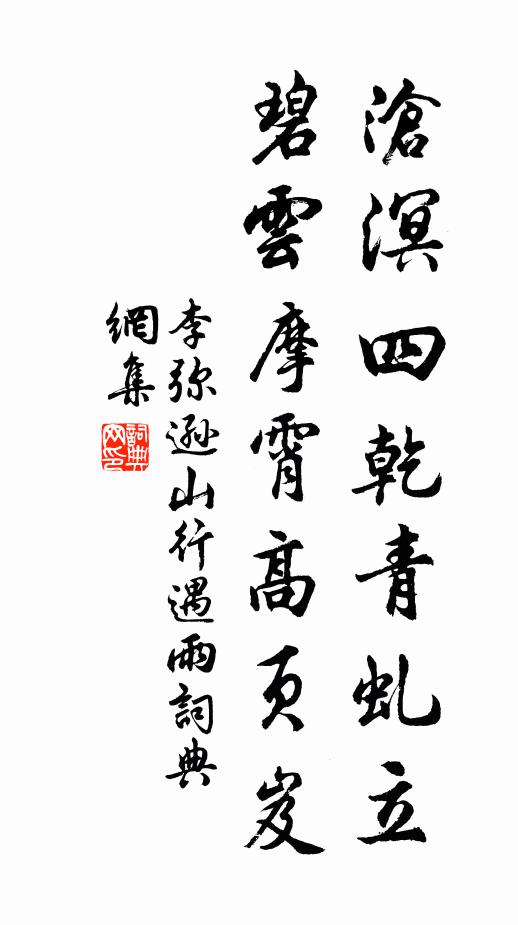 滄溟四乾青虬立
碧雲摩霄高頁岌
李弥遜山行遇雨詞典
網集
詞典網印